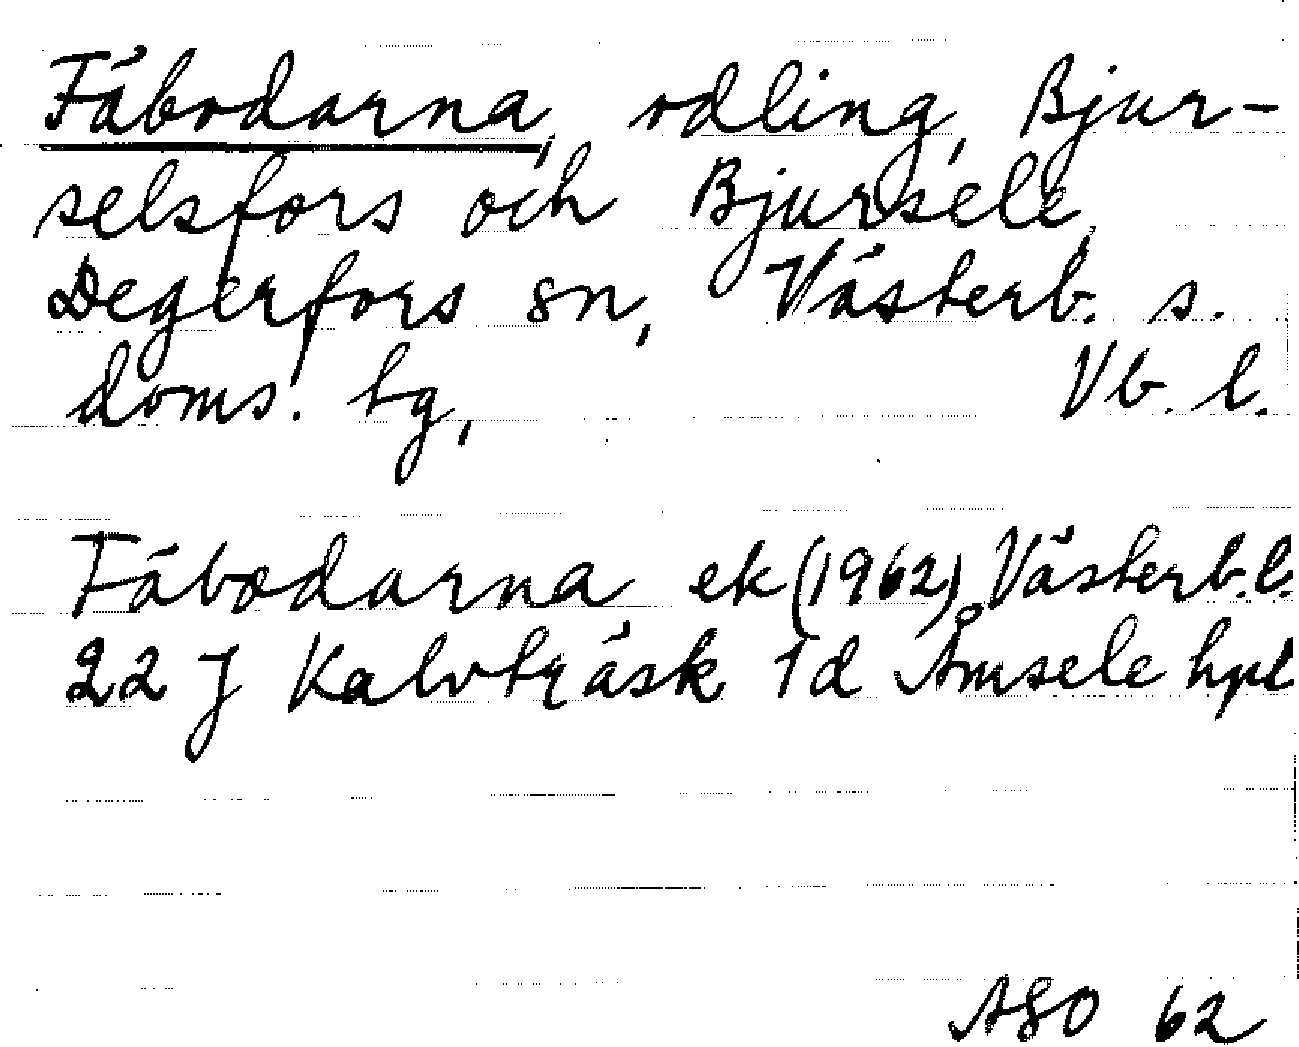 Fäbodarna, odling, Bjur-
selsfors och Bjursele,
Degerfors sn, Västerb. s.
doms. hg, Vb. l.
Fäbodarna ek (1962) Västerb. l.
22 J Kalvträsk 1d Åmsele hpl
ASO 62